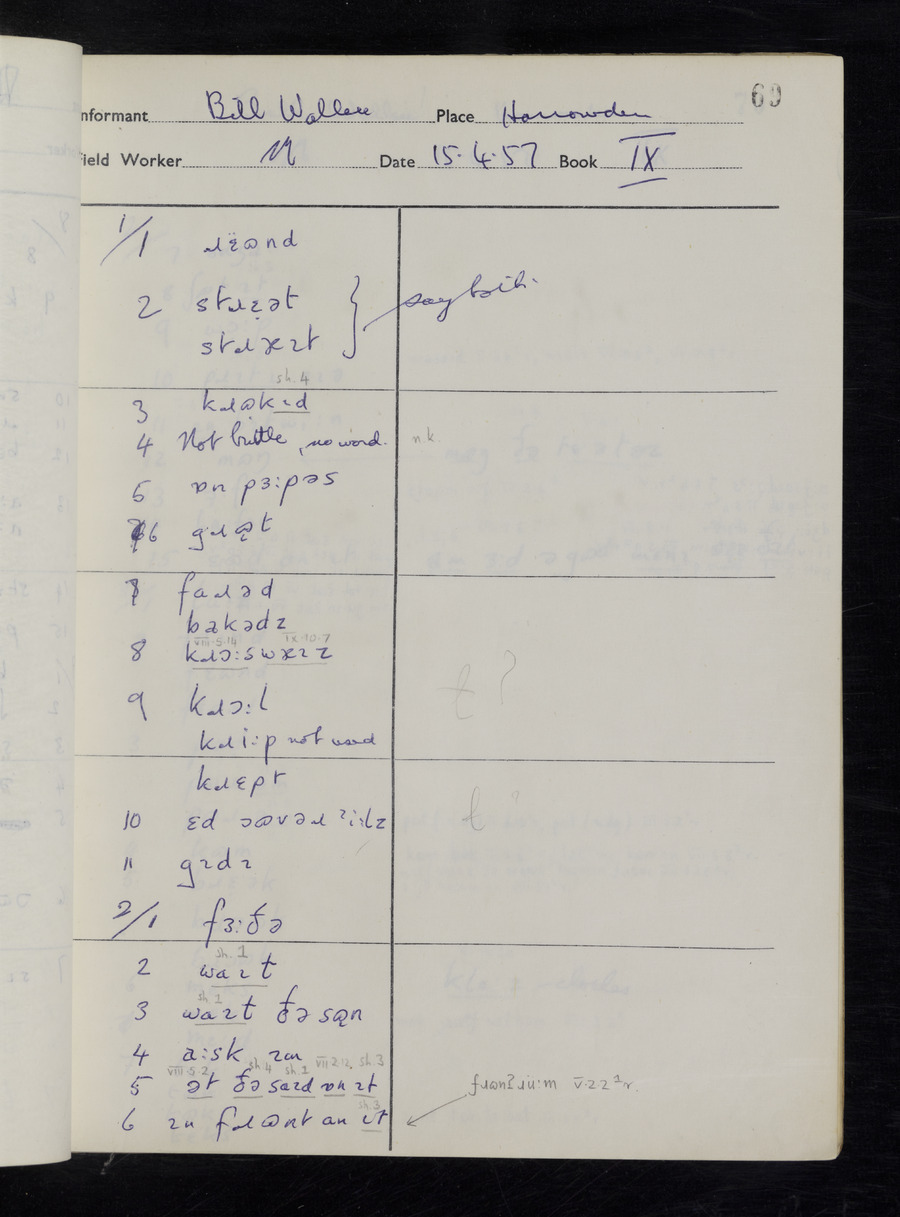 69
nformant Bill Wallace Place Harrowden
ield Worker Date 15·4·57 Book IX
1/1 ɹɛ̈ɷnd
2 stɹɛ̣ət } say both.
stɹæɪt
sh.4
3 kɹɷkɪd
4 Not brittle, no word. n.k.
5 ɒn pɜ:pəs
6 gɹɛət
7 faɹəd
bakədz
VIII·5·14 IX·10·7
8 kɹɔ:swæɪz
t ?
9 kɹɔ:l
kɹi:p not used
kɹɛpt
10 ɛd ɔɷvəɹ ʔi:lz t ?
11 gɪdɪ
2/1 fɜ:ðə
sh. 1
2 waɪt
sh. 1
3 waɪt ðə sąn
4 a:sk ɪm
VIII·5·2 sh.4 sh.1 VII·2·2. sh.3
5 ət ðə saɪd ɒn ɪt
fɹɒmʔɹu:m V·2·2 ¹r.
sh.3
6 ɪn fɹɷnt an ɪt